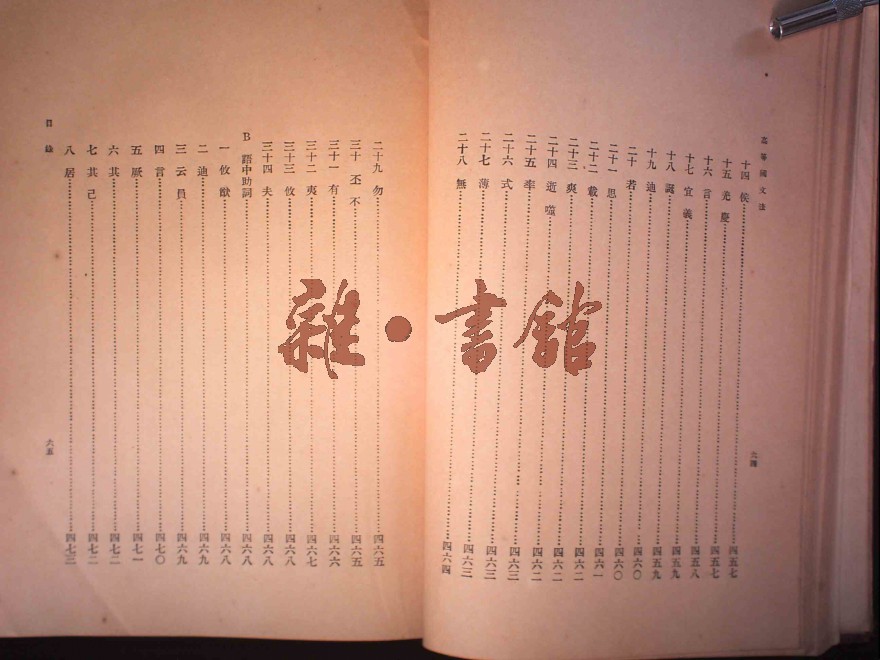 高等國文法
十四 侯 四五七
十五 羌慶 四五七
十六 言 四五八
十七 宜義 四五九
十八 誕 四五九
十九 迪 四六〇
二十 若 四六〇
二十一 思 四六〇
二十二 載 四六一
二十三 爽 四六二
二十四 逝噬 四六二
二十五 率 四六二
二十六 式 四六三
二十七 薄 四六三
二十八 無 四六四
六四
目錄
二十九 勿 四六五
三十 丕不 四六五
三十一 有 四六六
三十二 夷 四六七
三十三 攸 四六八
三十四 夫 四六八
B 語中助詞 四六八
一 攸猷 四六八
二 迪 四六九
三 云員 四六九
四 言 四七〇
五 厥 四七一
六 其 四七二
七 其己 四七二
八 居 四七三
六五
雜·書館